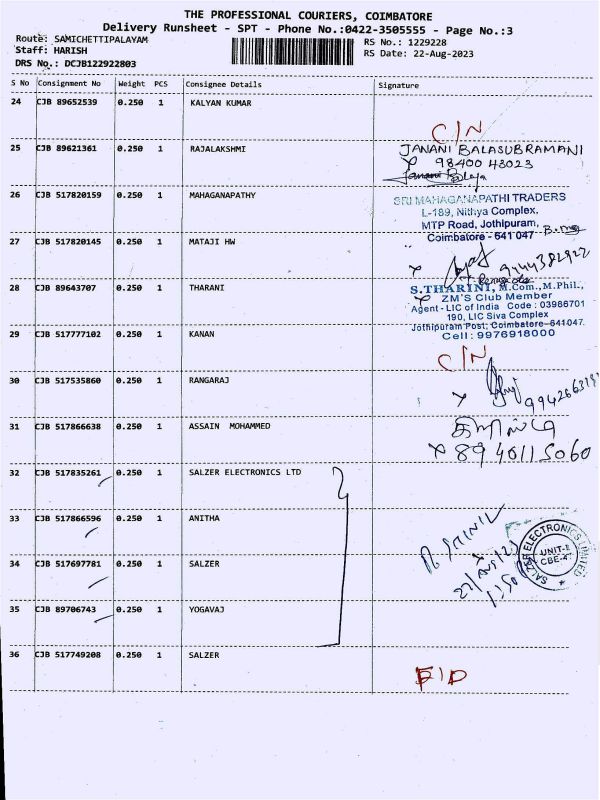 THE PROFESSIONAL COURIERS, COIMBATORE
Delivery Runsheet - SPT - Phone No.:0422-3505555 - Page No.:3
Route: SAMICHETTIPALAYAM
RS No.: 1229228
Staff: HARISH
RS Date: 22-Aug-2023
DRS No.: DCJB122922803
S No Consignment No Weight PCS Consignee Details Signature
24 CJB 89652539 0.250 1 KALYAN KUMAR
C/N
25 CJB 89621361 0.250 1 RAJALAKSHMI
JANANI BALASUBRAMANI
98400 43023
26 CJB 517820159 0.250 1 MAHAGANAPATHY
SRI MAHAGANAPATHI TRADERS
L-189, Nithya Complex,
MTP Road, Jothipuram,
Coimbatore - 641 047
27 CJB 517820145 0.250 1 MATAJI HW
9244382922
28 CJB 89643707 0.250 1 THARANI
S.THARINI, M.Com.,M.Phil.,
ZM'S Club Member
Agent - LIC of India Code : 03986701
190, LIC Siva Complex
Jothipuram Post, Coimbatore-641047.
Cell: 9976918000
29 CJB 517777102 0.250 1 KANAN
C/N
30 CJB 517535860 0.250 1 RANGARAJ
31 CJB 517866638 0.250 1 ASSAIN MOHAMMED
89 40115060
32 CJB 517835261 0.250 1 SALZER ELECTRONICS LTD
33 CJB 517866596 0.250 1 ANITHA
34 CJB 517697781 0.250 1 SALZER
SALZER ELECTRONICS LIMITED
35 CJB 89706743 0.250 1 YOGAVAJ
36 CJB 517749208 0.250 1 SALZER